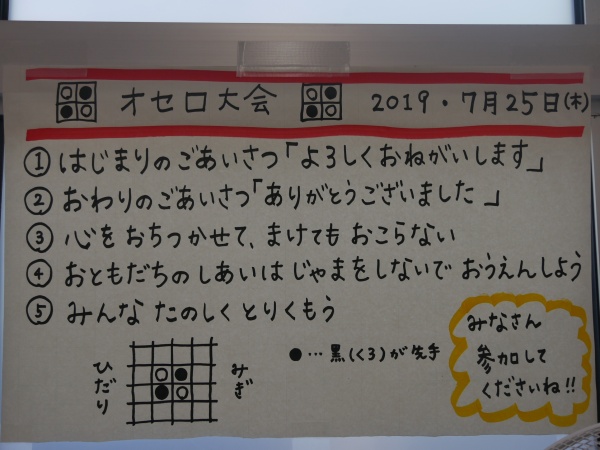 オセロ大会 2019・7月25日(木)
①はじまりのごあいさつ「よろしくおねがいします」
②おわりのごあいさつ「ありがとうございました」
③心をおちつかせて、まけても おこらない
④おともだちのしあいは じゃまをしないで おうえんしよう
⑤みんな たのしく とりくもう
ひだり
みぎ
●…黒(くろ)が先手
みなさん
参加して
くださいね!!